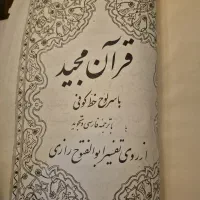 قرآن مجید
باسرلوح خط کوفی
با ترجمه فارسی و تجوید
از روی تفسیر ابوالفتوح رازی